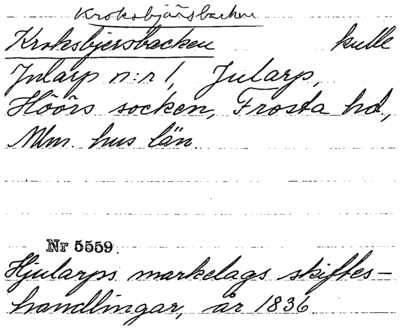 Kroksbjärsbacken
Kroksbjersbacken kulle
Jularp n:r 1, Jularp,
Höörs socken, Frosta hd,
Mlm. hus län
Nr 5559
Hjularps markelags skiftes-
handlingar, år 1836